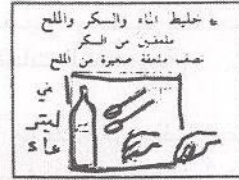 * خليط الماء والسكر والملح
ملعقتين من السكر
نصف ملعقة صغيرة من الملح
في
ليتر
ماء